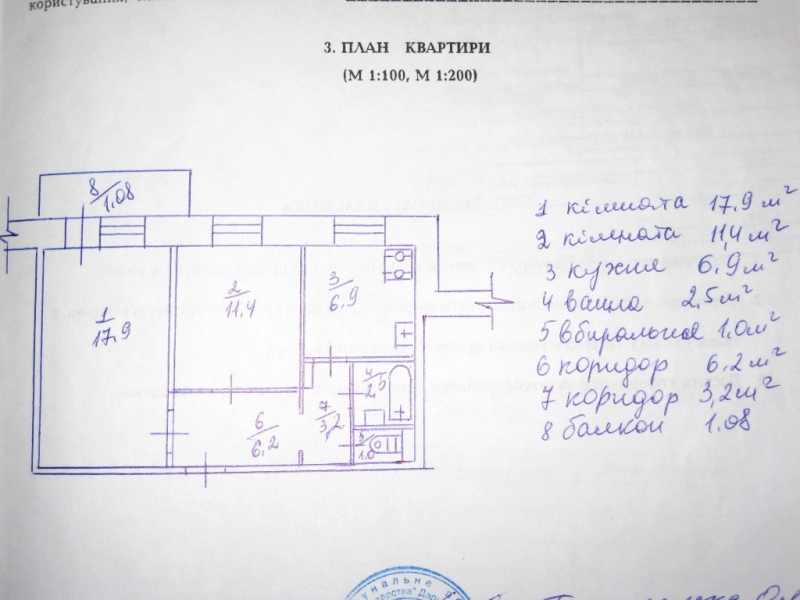 користування,
3. ПЛАН КВАРТИРИ
(М 1:100, М 1:200)
8/1.08
1/17.9
2/11.4
3/6.9
4/2.5
5/1.0
6/6.2
7/3,2
1 кімната 17.9 м²
2 кімната 11,4 м²
3 кухня 6,9 м²
4 ванна 2,5 м²
5 вбиральня 1.0 м²
6 коридор 6.2 м²
7 коридор 3,2 м²
8 балкон 1.08